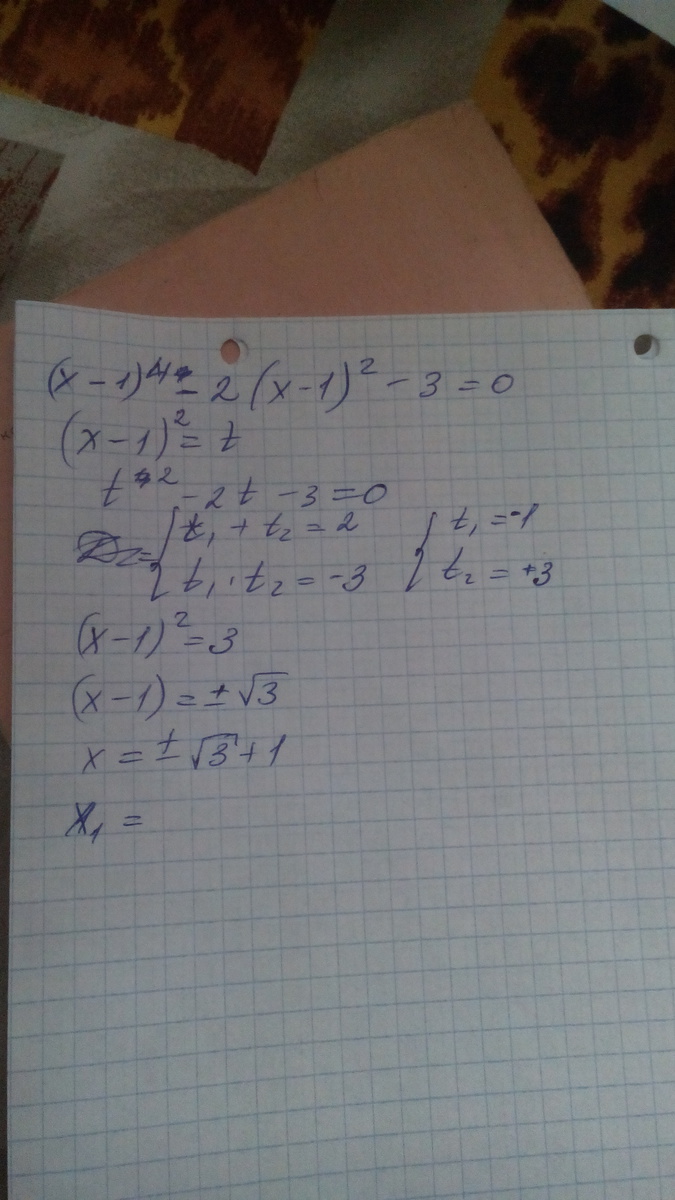 (x-1)⁴ - 2(x-1)² - 3 = 0
(x-1)² = t
t² - 2t - 3 = 0
{ t₁ + t₂ = 2 { t₁ = -1
{ t₁ · t₂ = -3 { t₂ = +3
(x-1)² = 3
(x-1) = ± √3
x = ± √3 + 1
x₁ =